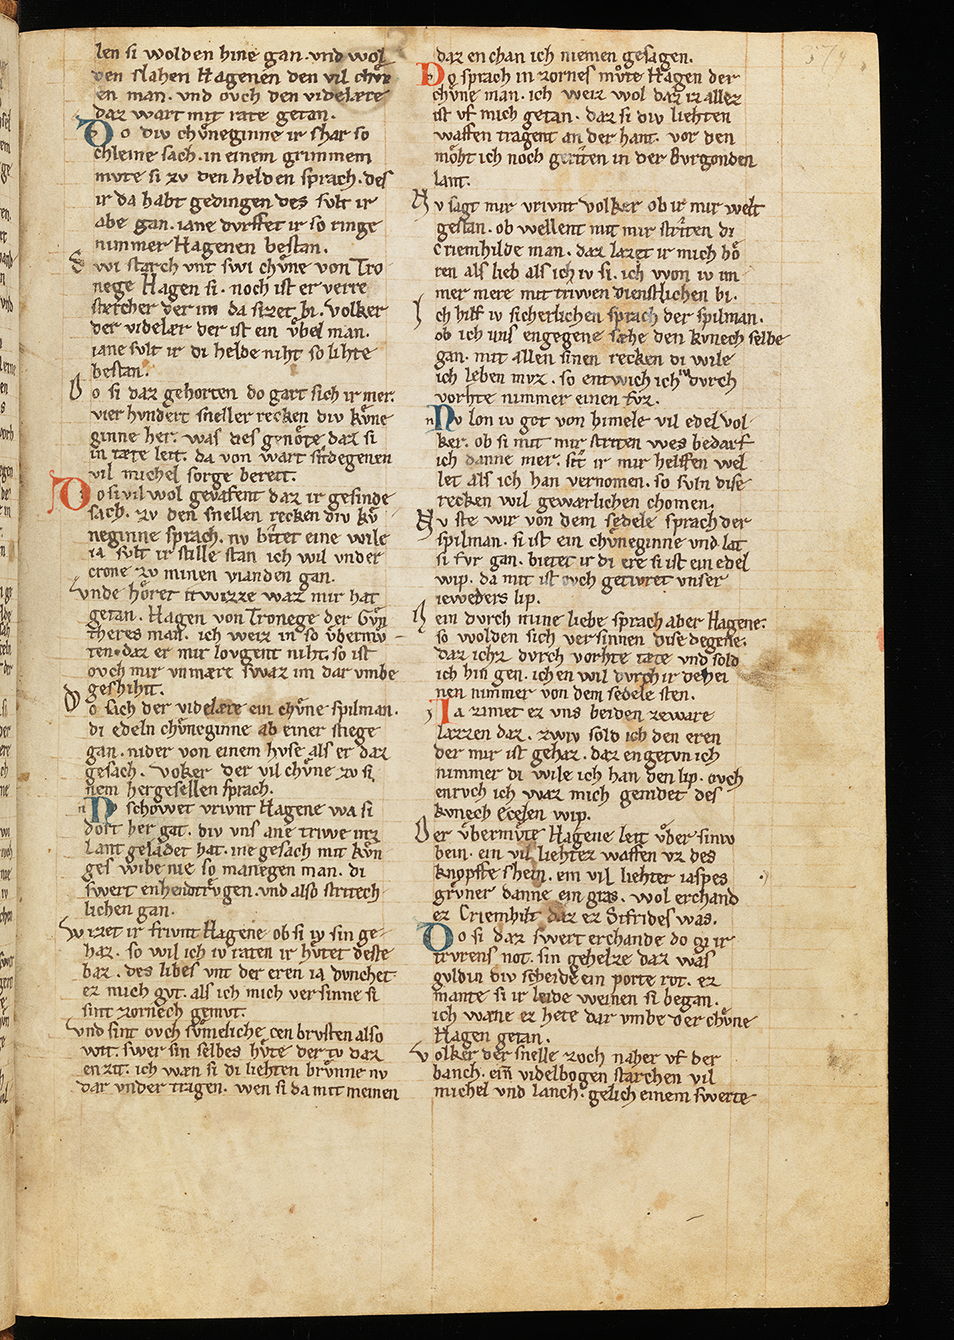 len si wolden hine gan. vnd wol
den slahen Hagenen den vil chvͦn
en man. vnd ovch den videlære
daz wart mit rate getan.
Do div chvͦneginne ir shar so
chleine sach. in einem grimmem
mvte si zv den helden sprach. des
ir da habt gedingen des svlt ir
abe gan. iane dvrffet ir so ringe
nimmer Hagenen bestan.
Swi starch vnt swi chvͦne von Tro
nege Hagen si. noch ist er verre
stercher der im da sizet bi. volker
der videlær der ist ein vͦbel man.
iane svlt ir di helde niht so lihte
bestan.
Do si daz gehorten do gart sich ir mer.
vier hvndert sneller recken div kvͦne
ginne her. was des genoͤte daz si
in tæte leit. da von wart sit degenen
vil michel sorge bereit.
Do si vil wol gewafent daz ir gesinde
sach. zv den snellen recken div kvͦ
neginne sprach. nv bitet eine wile
ia svlt ir stille stan ich wil vnder
crone zv minen vianden gan.
vnde hoͤret itwizze waz mir hat
getan. Hagen von Tronege der Gvn
theres man. ich weiz in so vͦbermv
ten. daz er mir lovgent niht. so ist
ovch mir vnmære swaz im dar vmbe
geshiht.
Do sach der videlære ein chvͦne spilman.
di edeln chvͦneginne ab einer stiege
gan. nider von einem hvse als er daz
gesach. voker der vil chvͦne zv si
nem hergesellen sprach.
Nv schowet vrivnt Hagene wa si
dort her gat. div vns ane triwe inz
lant geladet hat. ine gesach mit kvͦn
ges wibe nie so manegen man. di
swert enhendtrvͦgen. vnd also stritech
lichen gan.
Wizzet ir frivnt Hagene ob si iv sin ge
haz. so wil ich iv raten ir hvͦtet deste
baz. des libes vnt der eren ia dvnchet
ez mich gvt. als ich mich versinne si
sint zornech gemvt.
vnd sint ovch svmͦliche cen brvsten also
wit. swer sin selbes hvͦte der tv daz
enzit. ich wæn si di liehten brvͦnne nv
dar vnder tragen. wen si da mit meinen
daz en chan ich niemen gesagen.
Do sprach in zornes mvͦte Hagen der
chvͦne man. ich weiz wol daz iz allez
ist vf mich getan. daz si div liehten
waffen tragent an der hant. vor den
moͤht ich noch geriten in der Bvrgonden
lant.
Nv sagt mir vrivnt volker ob ir mir welt
gestan. ob wellent mit mir striten di
Criemhilde man. daz lazet ir mich hoͤ
ren als lieb als ich iv si. ich won iv im
mer mere mit triwen dienstlichen bi.
Ich hilf iv sicherlichen sprach der spilman.
ob ich uns engegene sæhe den kvnech selbe
gan. mit allen sinen recken di wile
ich leben mvz. so entwich ich iv dvrch
vorhte nimmer einen fvz.
Nv lon iv got von himele vil edel vol
ker. ob si mit mir striten wes bedarf
ich danne mer. sit ir mir helffen wel
let als ich han vernomen. so svln dise
recken vil gewærlichen chomen.
Nv ste wir von dem sedele sprach der
spilman. si ist ein chvneginne vnd lat
si fvr gan. bietet ir di ere si ist ein edel
wip. da mit ist ovch getivret vnser
ieweders lip.
Nein dvrch mine liebe sprach aber Hagene.
so wolden sich versinnen dise degene.
daz ichz dvrch vorhte tæte vnd sold
ich hin gen. ichen wil dvrch ir dehei
nen nimmer von dem sedele sten.
Ia zimet ez vns beiden zeware
lazzen daz. zwiv sold ich den eren
der mir ist gehaz. daz engetvn ich
nimmer di wile ich han den lip. ovch
enrvch ich waz mich genidet des
kvnech Ecelen wip.
Der vͦbermvͦte Hagene leit vͦber siniv
bein. ein vil liehtez waffen vz des
knopffe shein. ein vil liehter iaspes
grvͦner danne ein gras. wol erchand
ez Criemhilt daz ez Sifrides was.
Do si daz swert erchande do gi ir
trvrens not. sin gehelze daz was
gvldin div scheide ein porte rot. ez
mante si ir leide weinen si began.
ich wæne ez hete dar vmbe der chvͦne
Hagen getan.
Volker der snelle zoch naher vf der
banch. ein videlbogen starchen vil
michel vnd lanch. gelich einem swerte